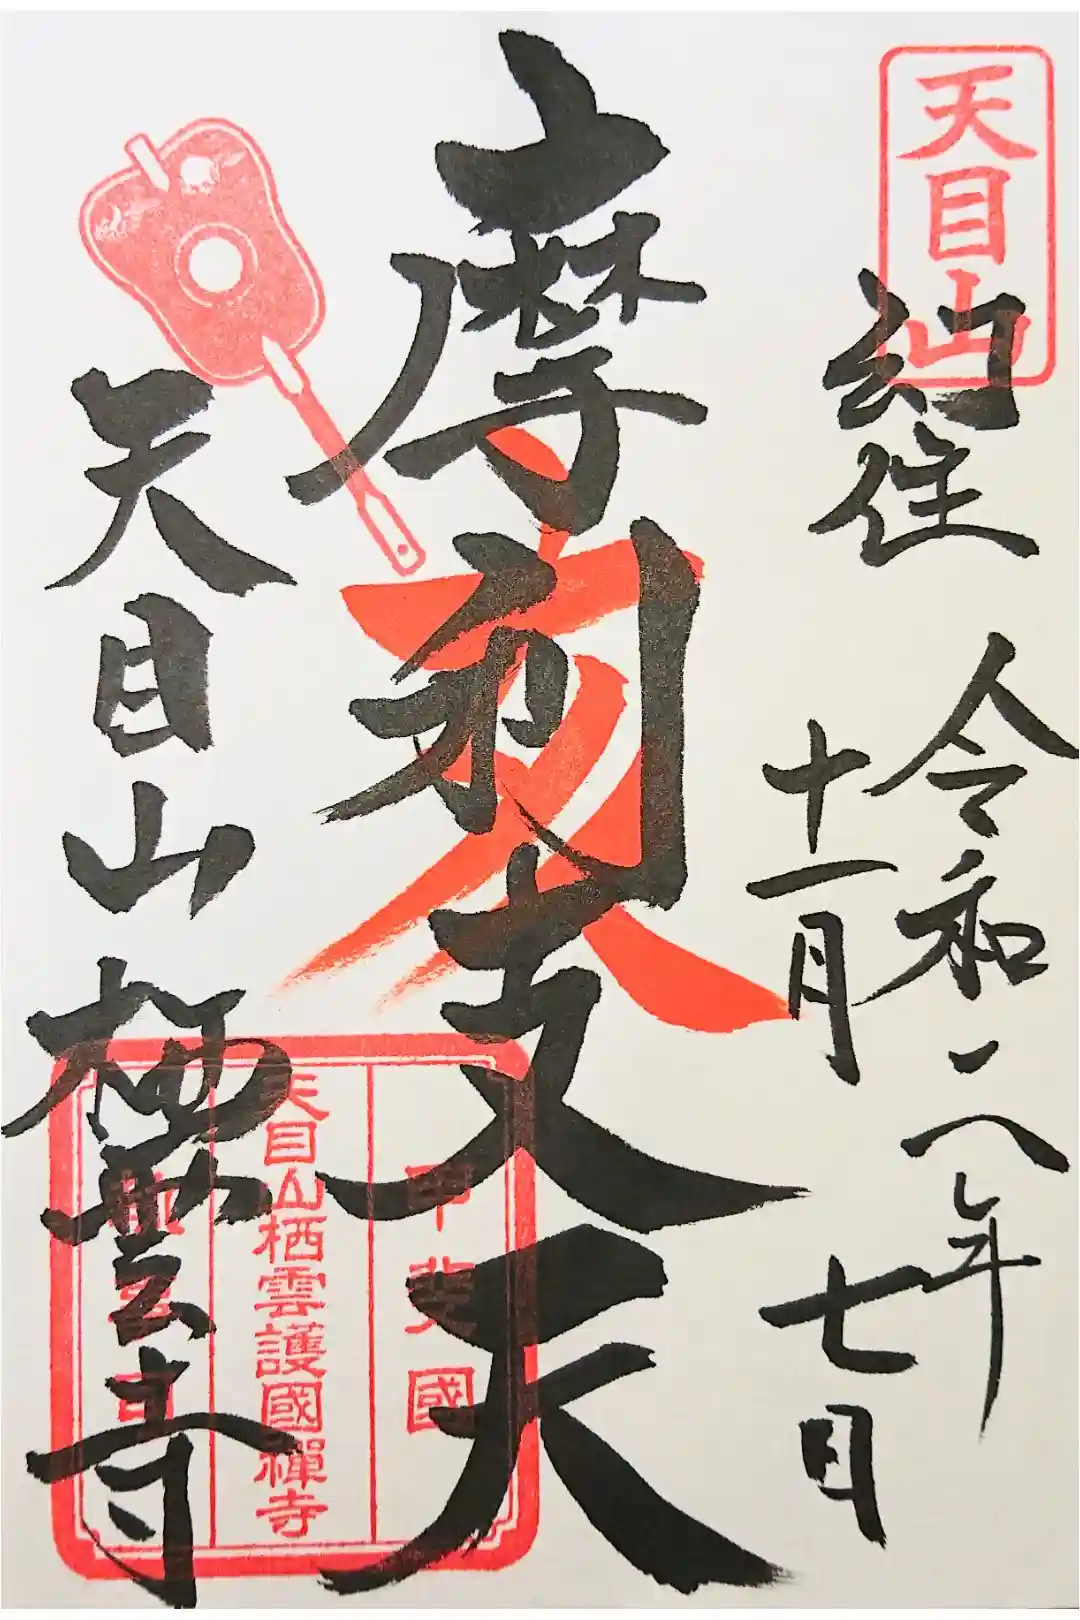 天目山
幻住
令和二年
十一月七日
摩利支天
天目山栖雲寺
甲斐國
天目山栖雲護國禅寺